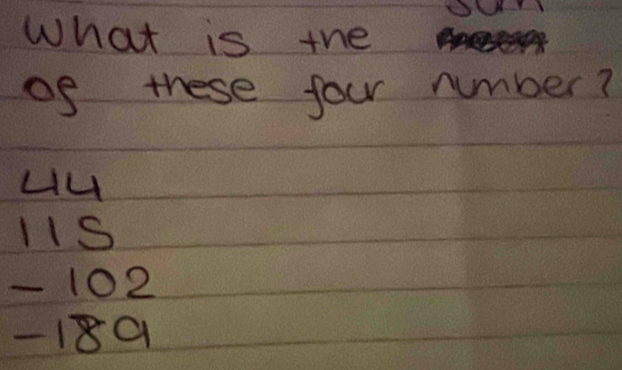 sum
What is the
of these four number?
44
115
-102
-189